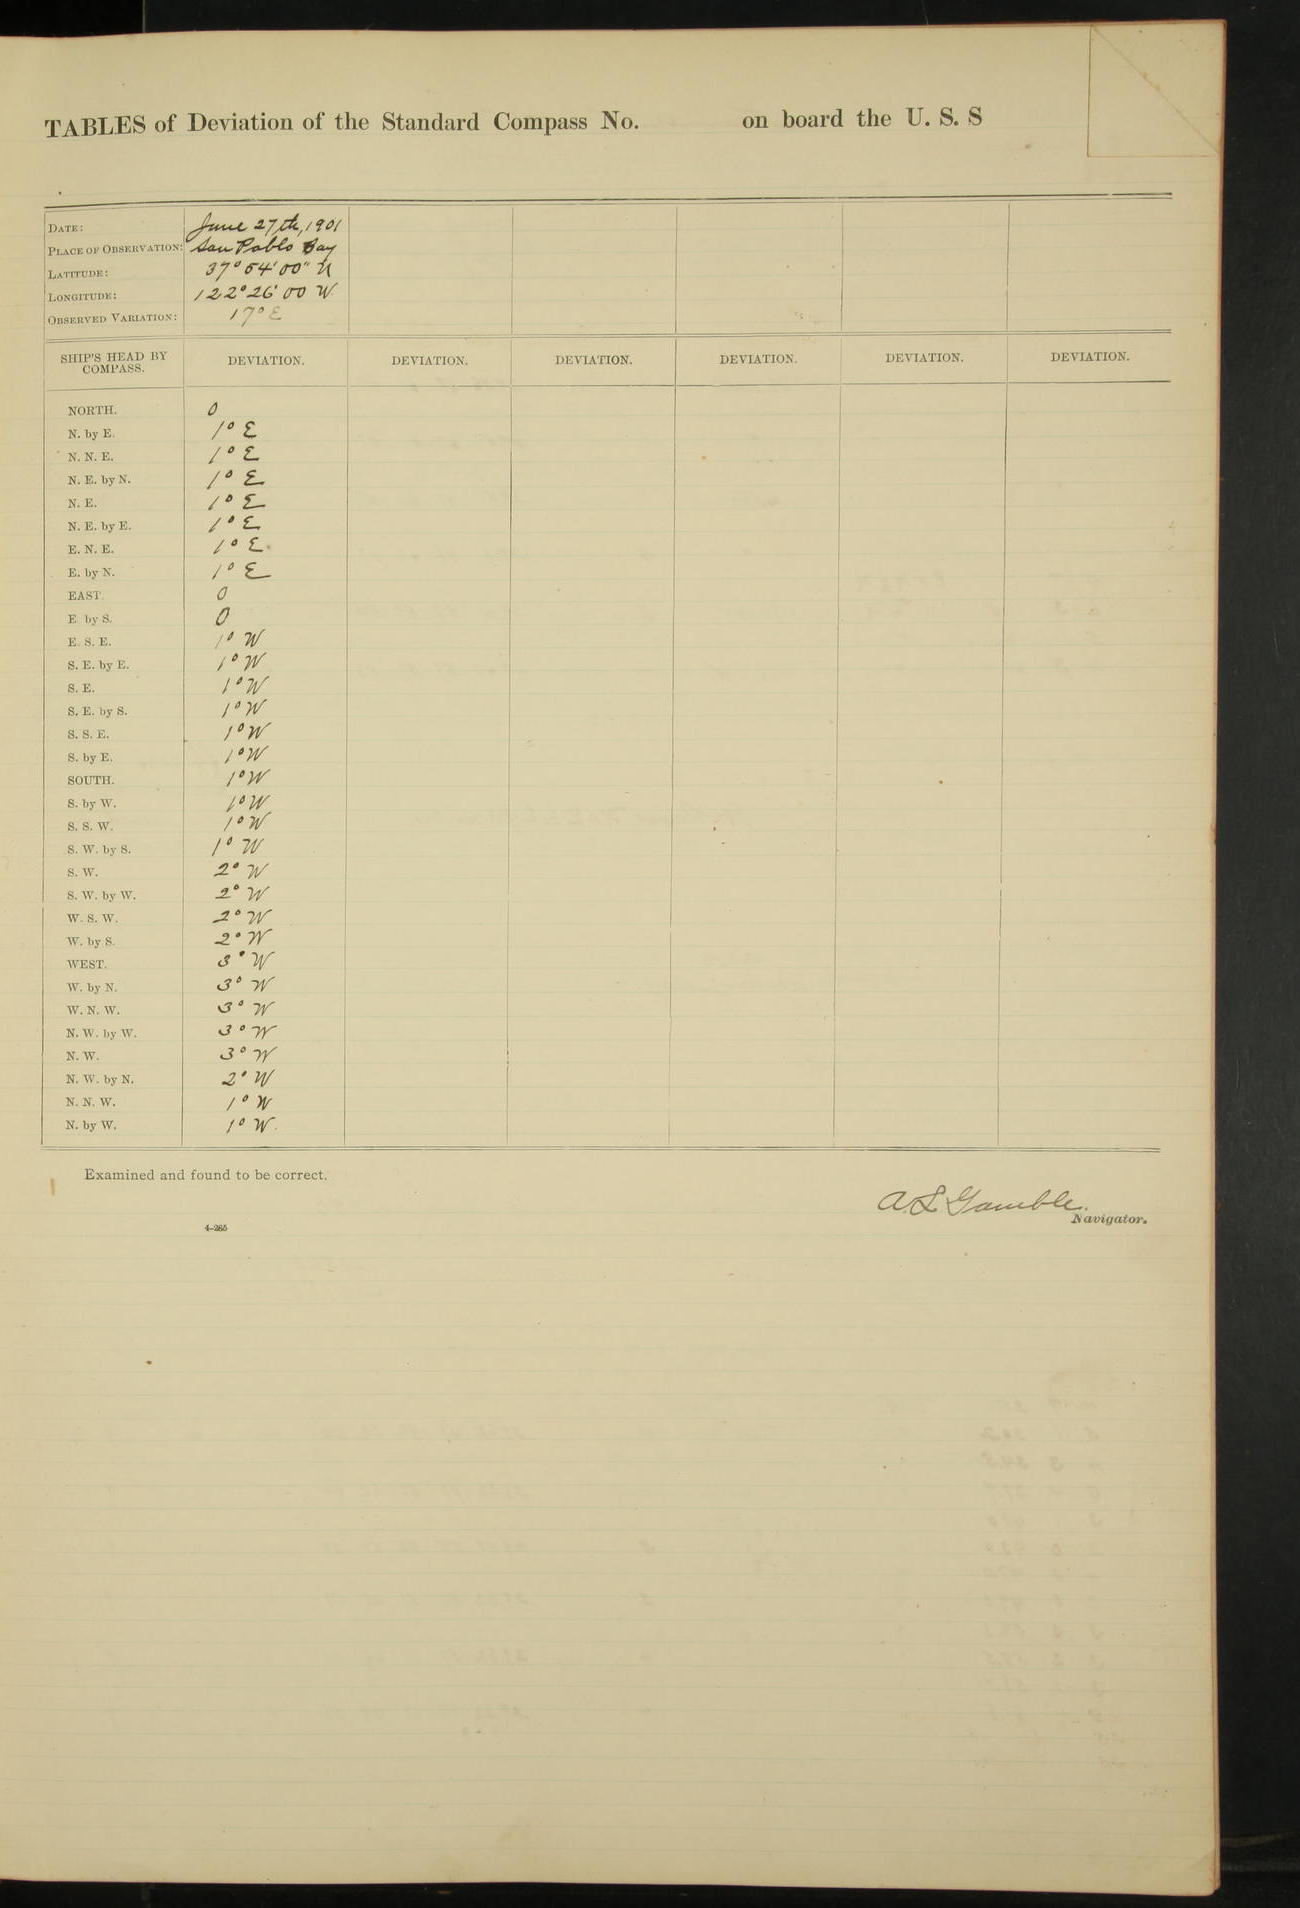 TABLES of Deviation of the Standard Compass No. on board the U. S. S
DATE: June 27th, 1901
PLACE OF OBSERVATION: San Pablo Bay
LATITUDE: 37° 54' 00" N
LONGITUDE: 122° 26' 00 W.
OBSERVED VARIATION: 17° E
SHIP'S HEAD BY COMPASS. DEVIATION. DEVIATION. DEVIATION. DEVIATION. DEVIATION. DEVIATION.
NORTH. 0
N. by E. 1° E
N. N. E. 1° E
N. E. by N. 1° E
N. E. 1° E
N. E. by E. 1° E
E. N. E. 1° E.
E. by N. 1° E
EAST. 0
E. by S. 0
E. S. E. 1° W
S. E. by E. 1° W
S. E. 1° W
S. E. by S. 1° W
S. S. E. 1° W
S. by E. 1° W
SOUTH. 1° W
S. by W. 1° W
S. S. W. 1° W
S. W. by S. 1° W
S. W. 2° W
S. W. by W. 2° W
W. S. W. 2° W
W. by S. 2° W
WEST. 3° W
W. by N. 3° W
W. N. W. 3° W
N. W. by W. 3° W
N. W. 3° W
N. W. by N. 2° W
N. N. W. 1° W
N. by W. 1° W.
Examined and found to be correct.
A. L. Gamble.
Navigator.
4–265